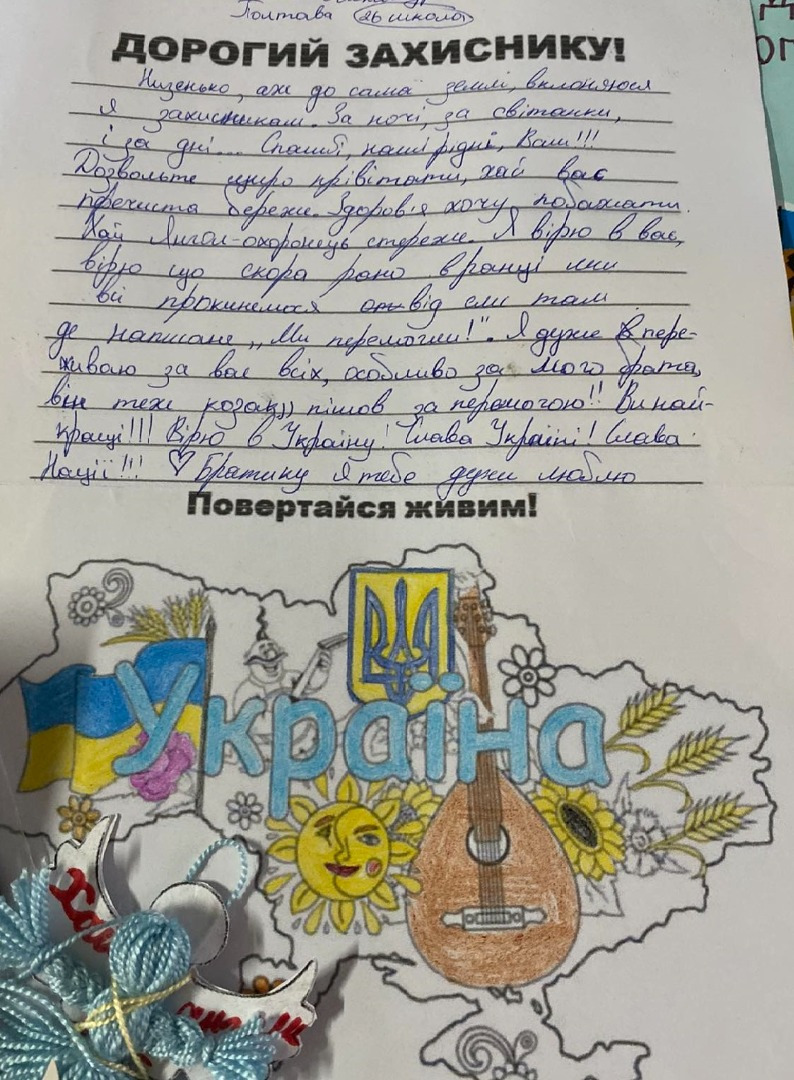 Полтава 26 школа
ДОРОГИЙ ЗАХИСНИКУ!
Низенько, аж до самої землі, вклоняюся
я захисникам. За ночі, за світанки,
і за дні... Спасибі, наші рідні, Вам!!!
Дозвольте щиро прівітати, хай вас
пречиста береже. Здоров'я хочу побажати.
Хай Янгол-охоронець стереже. Я вірю в вас,
вірю що скора рано вранці ми
всі прокинемося від смс там
де написане „Ми перемогли!". Я дуже пере-
живаю за вас всіх, особливо за мого брата,
він теж козак)) пішов за перемогою!! Ви най-
кращі!!! Вірю в Україну! Слава Україні! Слава
Нації!!! ♡ Братику я тебе дуже люблю
Повертайся живим!
Україна